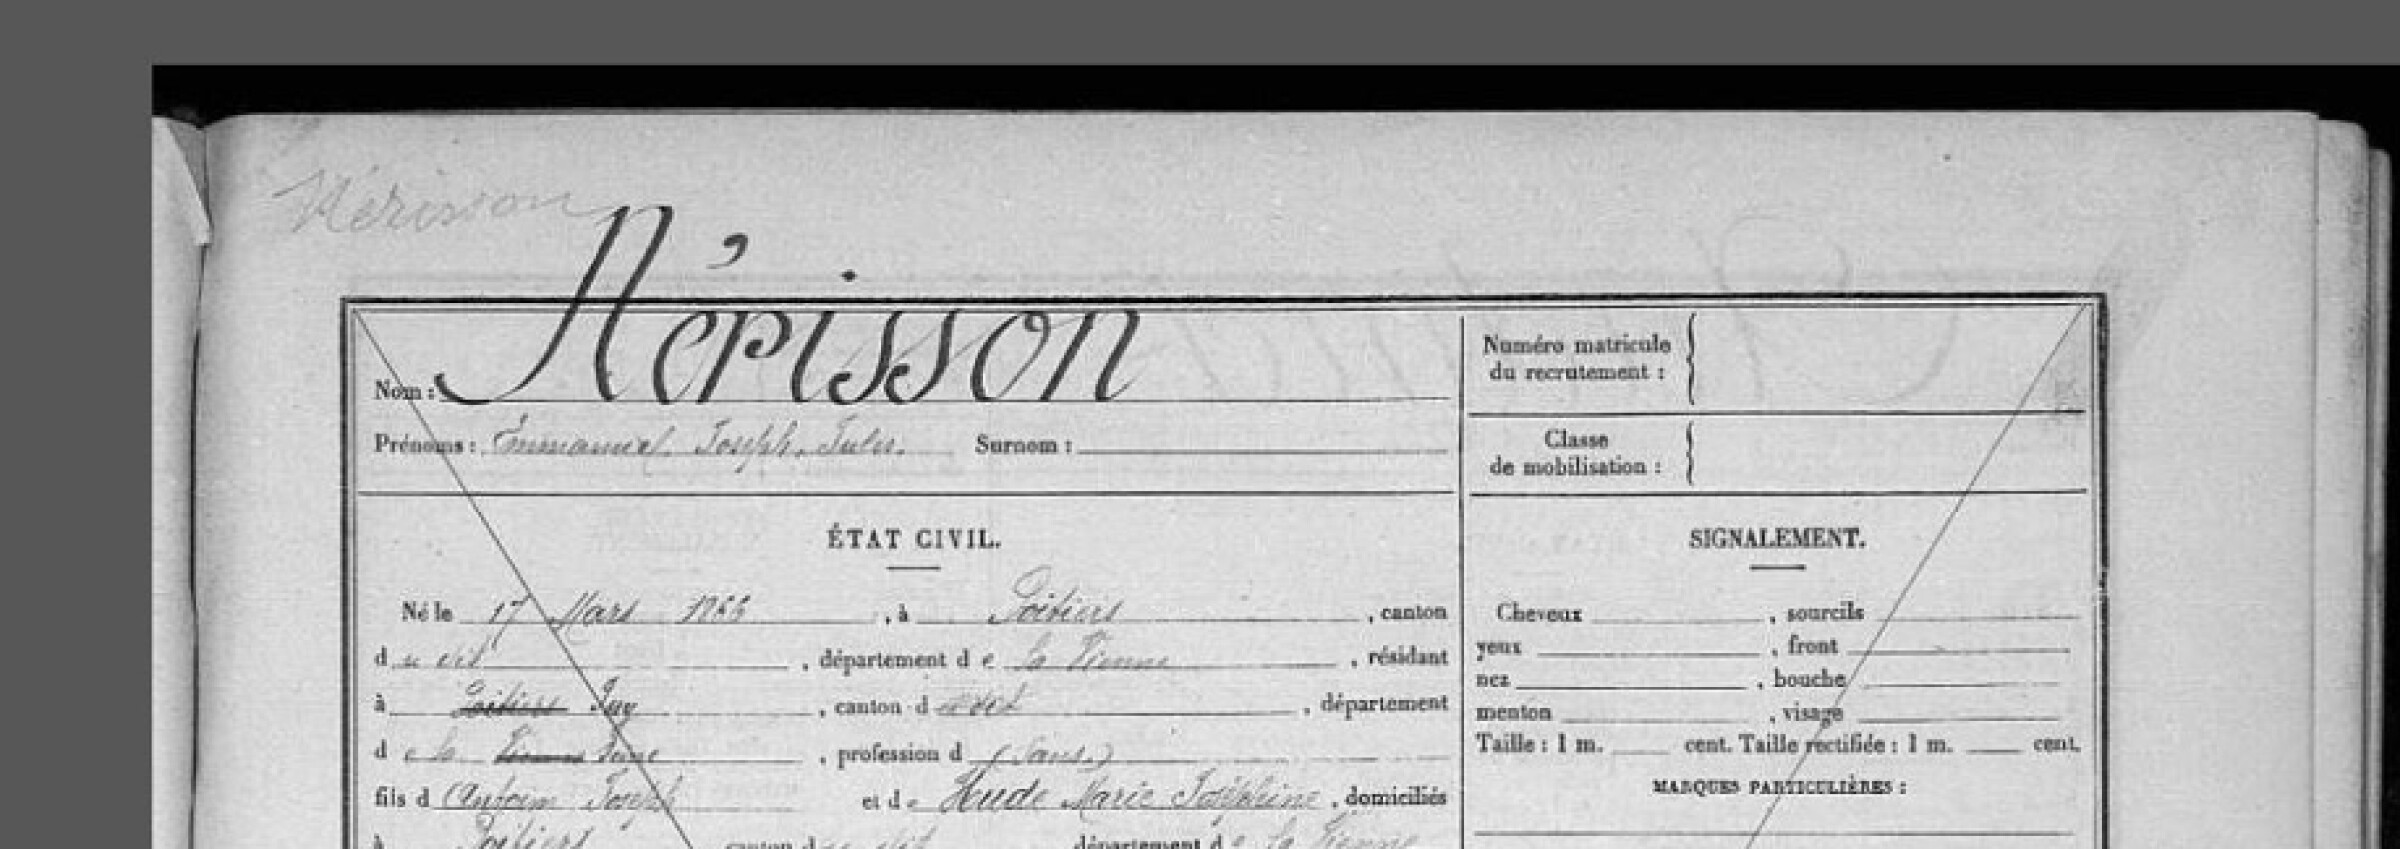 Nérisson
Nom : Nérisson
Numéro matricule
du recrutement :
Prénoms : Emmanuel. Joseph. Jules. Surnom :
Classe
de mobilisation :
ÉTAT CIVIL.
Né le 17 Mars 1866, à Poitiers, canton
du dit, département de la Vienne, résidant
à Poitiers Puy, canton dudit, département
de la Vienne Seine, profession d (Sans.)
fils d Antoine Joseph et de Hude Marie Joséphine, domiciliés
à Poitiers canton du dit département de la Vienne
SIGNALEMENT.
Cheveux , sourcils
yeux , front
nez , bouche
menton , visage
Taille : 1 m. cent. Taille rectifiée : 1 m. cent.
MARQUES PARTICULIÈRES :